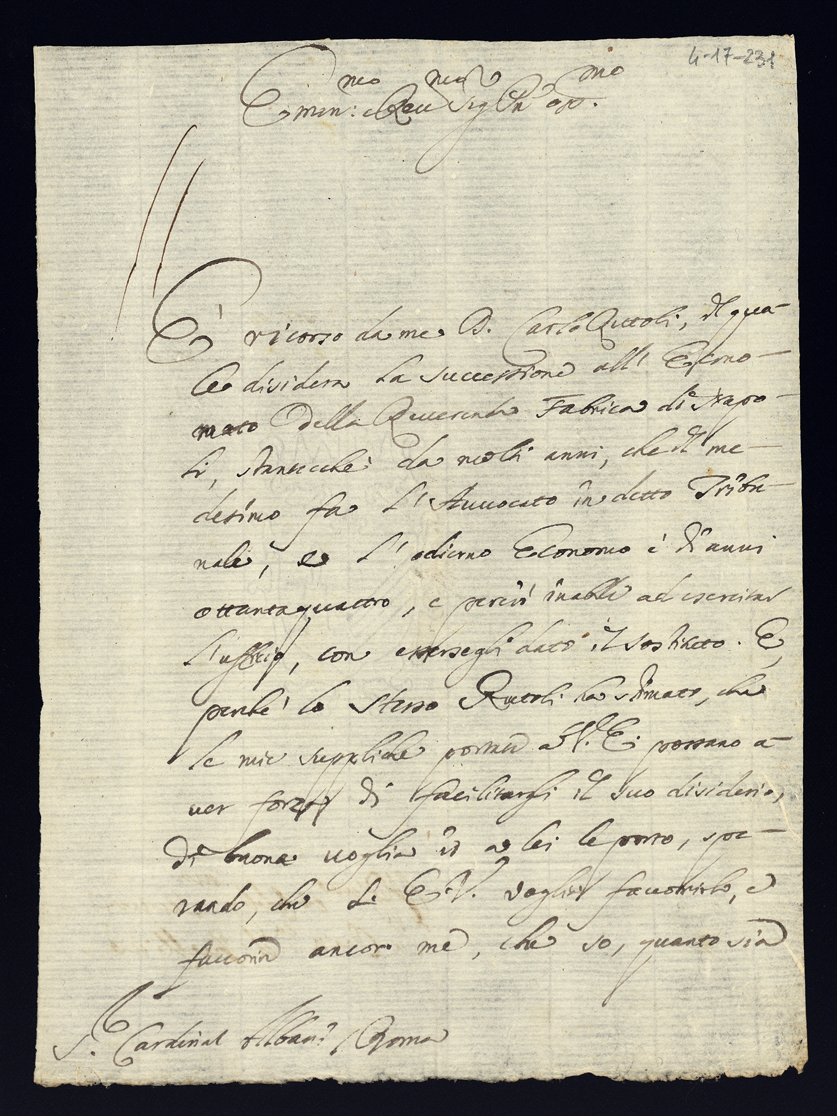 4-17-231
Emin:mo e Rev.mo Sig.r mio
È ricorso da me D. Carlo Ruttoli, il qua-
le disidera la successione all' Econo-
mato della Reverenda Fabrica di Napo-
li, stantecchè da molti anni, che il me-
desimo fa l'Avvocato in detto Tribu-
nale, e l'odierno Economo è di anni
ottantaquattro, e perciò inabile ad esercitar
l'uffizio, con essersegli dato il sostituto. E,
perchè lo stesso Ruttoli ha stimato, che
le mie suppliche portate a V. E. possano a-
ver forza di facilitargli il suo disiderio,
di buona voglia io a lei le porto, spe-
rando, che L' E. V. voglia favorirlo, e
favorirà ancora me, che so, quanto sia
S. Cardinal Albani Roma